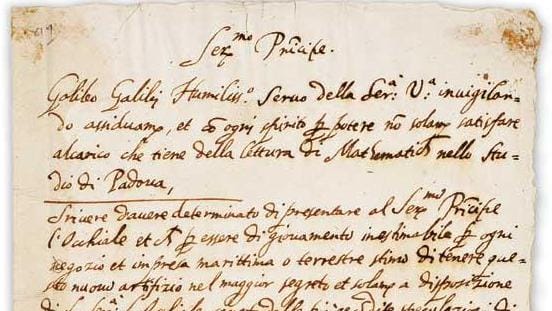 Ser.mo Prĩcipe.
Galileo Galilei Humiliss.o Servo della Ser.a V.a invigilan-
do assiduam.te, et cõ ogni spirito p potere nõ solam.te satisfare
alcarico che tiene della lettura di Mathematica nello Stu-
dio di Padova,
Scrivere davere determinato di presentare al Ser.mo Prĩcipe
l'Occhiale et p essere di giovamento inestimabile p ogni
negozio et impresa marittima o terrestre stimo di tenere que-
sto nuovo artifizio nel maggior segreto et solam.te a disposizione